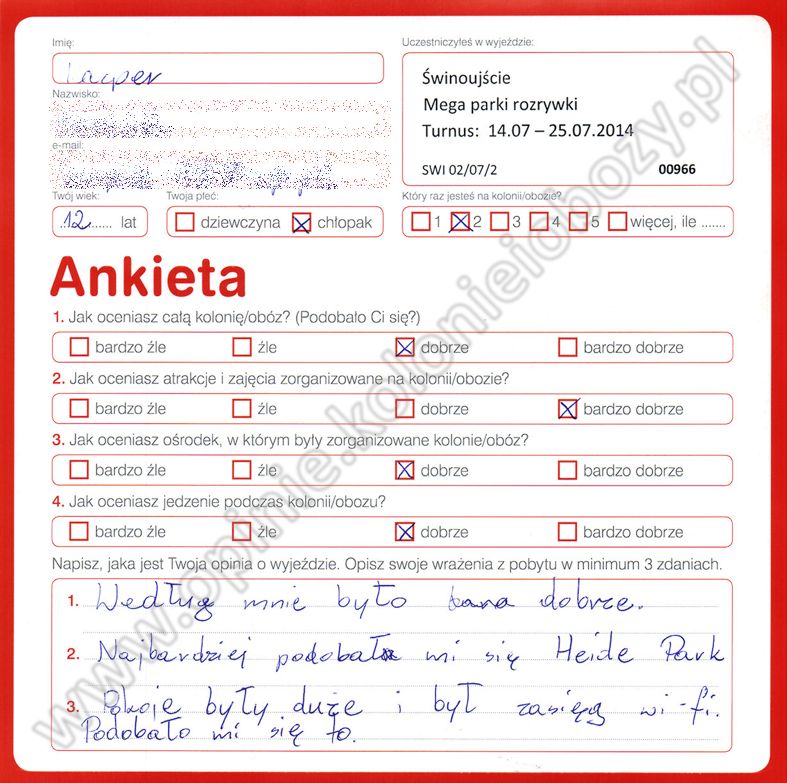 Imię:
Uczestniczyłeś w wyjeździe:
Kacper
Świnoujście
Mega parki rozrywki
Turnus: 14.07 – 25.07.2014
SWI 02/07/2
00966
Nazwisko:
e-mail:
Twój wiek:
Twoja płeć:
Który raz jesteś na kolonii/obozie?
12 lat
dziewczyna
chłopak
1 2 3 4 5 więcej, ile .......
Ankieta
1. Jak oceniasz całą kolonię/obóz? (Podobało Ci się?)
bardzo źle źle dobrze bardzo dobrze
2. Jak oceniasz atrakcje i zajęcia zorganizowane na kolonii/obozie?
bardzo źle źle dobrze bardzo dobrze
3. Jak oceniasz ośrodek, w którym były zorganizowane kolonie/obóz?
bardzo źle źle dobrze bardzo dobrze
4. Jak oceniasz jedzenie podczas kolonii/obozu?
bardzo źle źle dobrze bardzo dobrze
Napisz, jaka jest Twoja opinia o wyjeździe. Opisz swoje wrażenia z pobytu w minimum 3 zdaniach.
1. Według mnie było dobrze.
2. Najbardziej podobał mi się Heide Park
3. Pokoje były duże i był zasięg wi-fi.
Podobało mi się to.
www.opinie.kolonieiobozy.pl